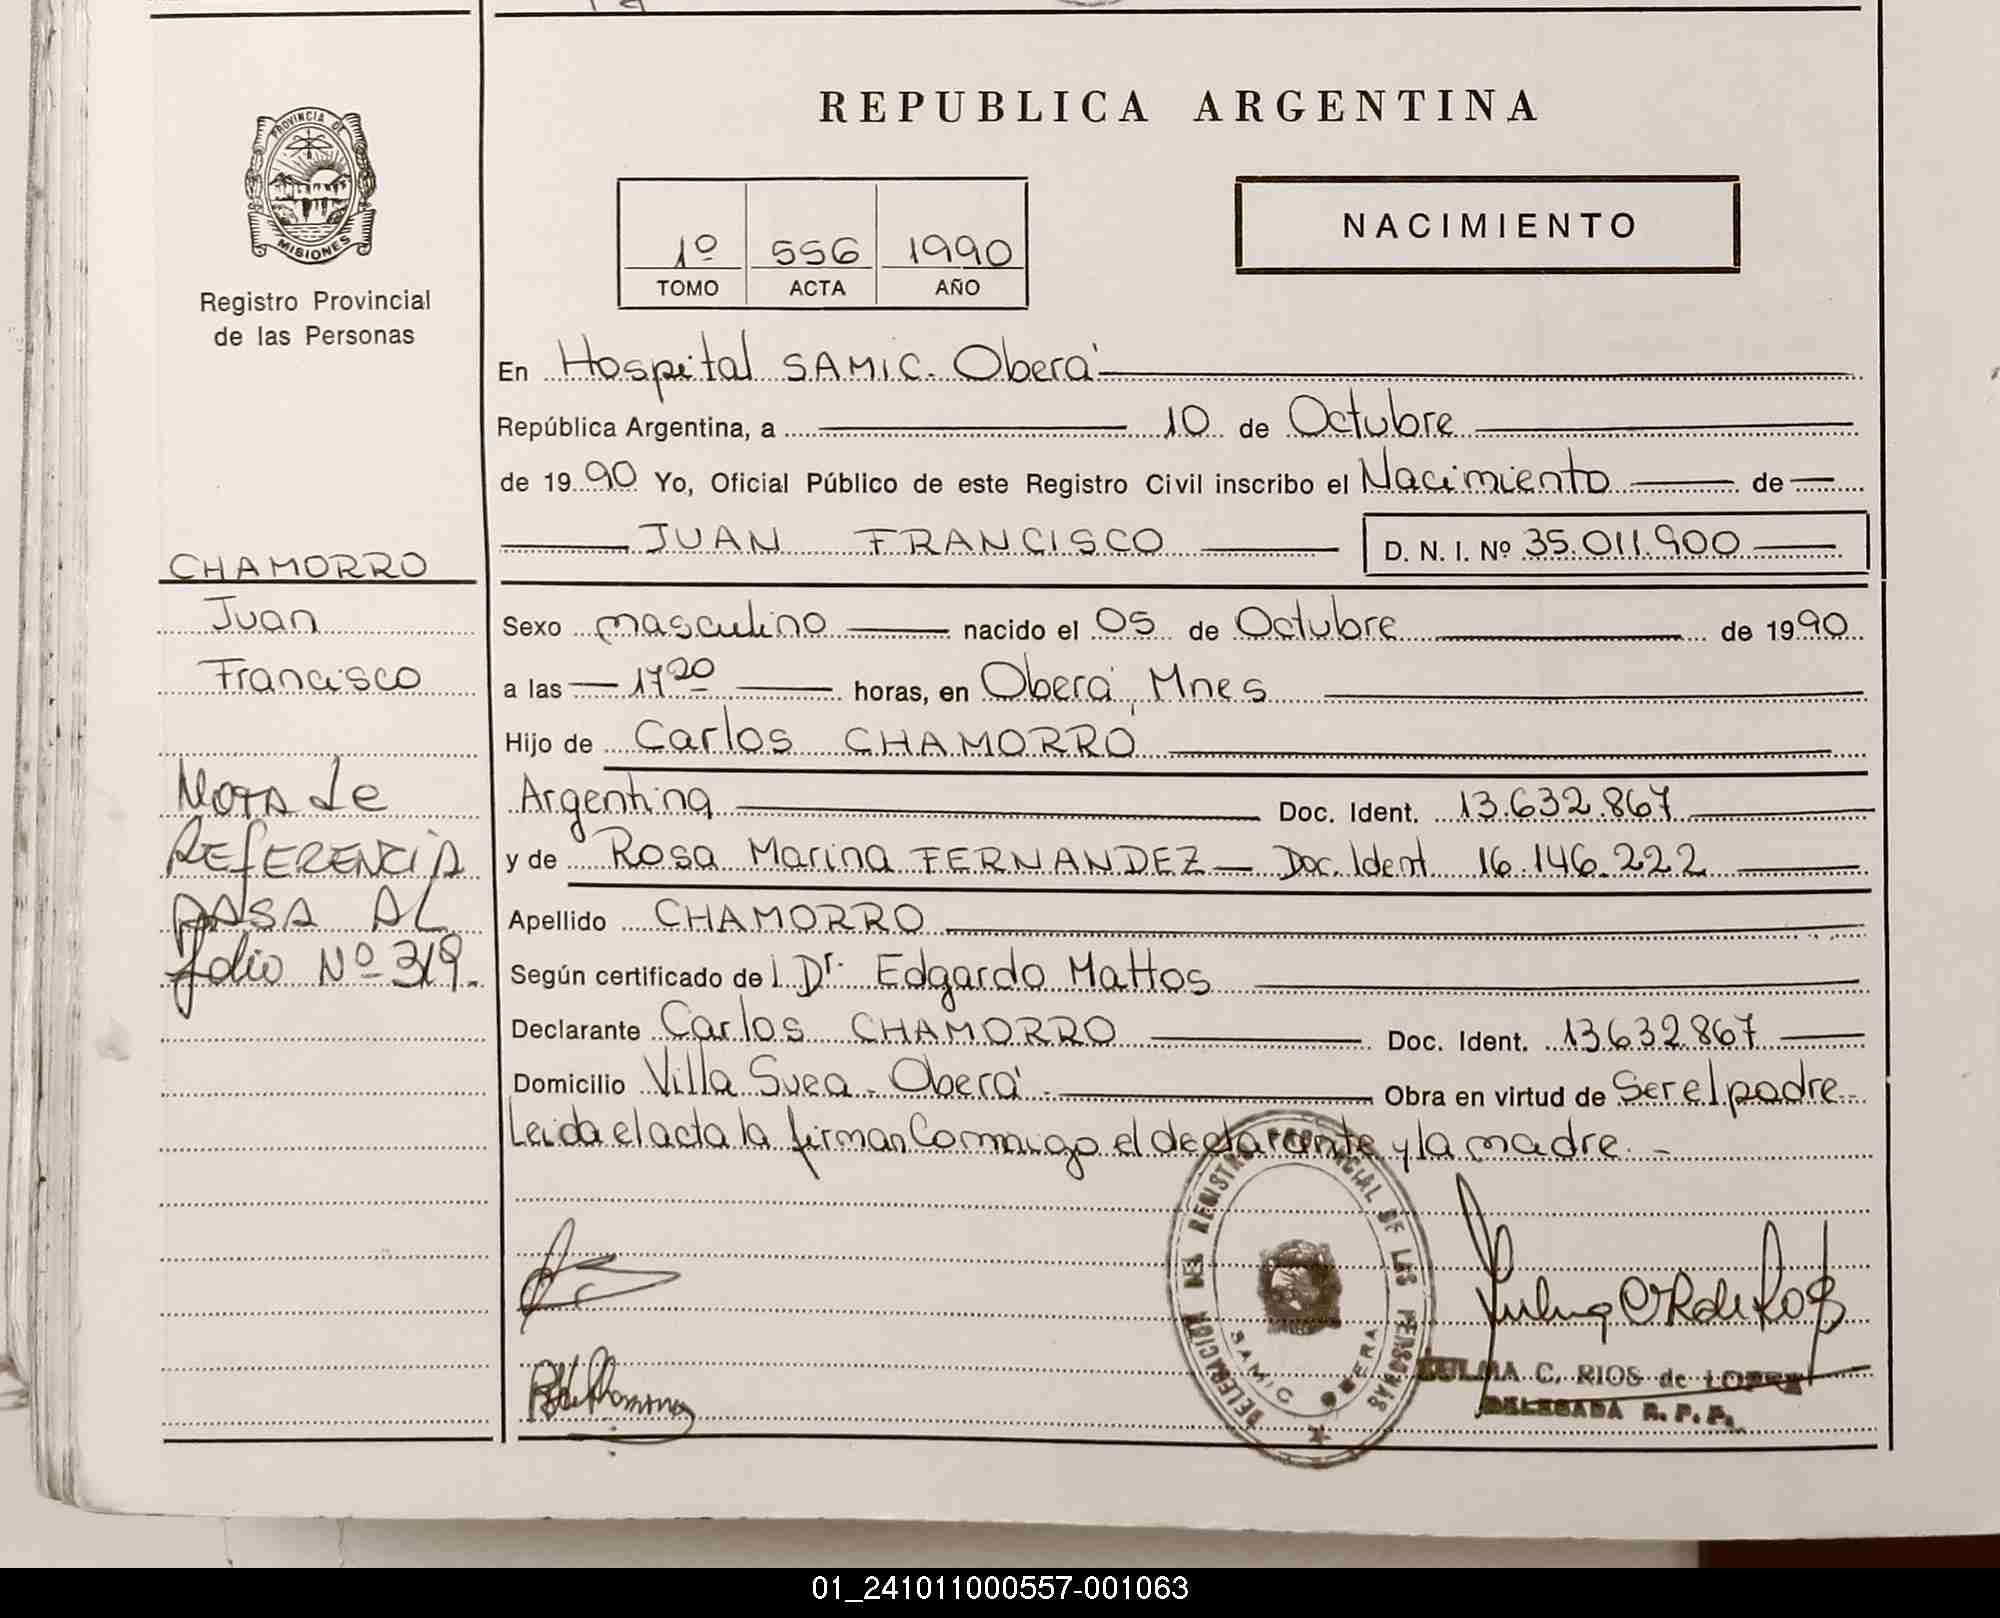 REPUBLICA ARGENTINA
PROVINCIA DE
MISIONES
Registro Provincial
de las Personas
1º 556 1990
TOMO ACTA AÑO
NACIMIENTO
En Hospital SAMIC. Oberá
República Argentina, a 10 de Octubre
de 1990 Yo, Oficial Público de este Registro Civil inscribo el Nacimiento de
JUAN FRANCISCO D. N. I. Nº 35.011.900
CHAMORRO
Juan
Francisco
Nota de
REFERENCIA
PASA AL
folio Nº 319.
Sexo masculino nacido el 05 de Octubre de 1990
a las 17 20 horas, en Oberá, Mnes
Hijo de Carlos CHAMORRO
Argentina Doc. Ident. 13.632.867
y de Rosa Marina FERNANDEZ Doc. Ident 16.146.222
Apellido CHAMORRO
Según certificado del Dr. Edgardo Mattos
Declarante Carlos CHAMORRO Doc. Ident. 13.632.867
Domicilio Villa Svea - Oberá Obra en virtud de Ser el padre
Leida el acta la firman Conmigo el declarante y la madre. -
DELEGACION DEL REGISTRO PROVINCIAL DE LAS PERSONAS
SAMIC OBERA
ZULMA C. RIOS de LOPEZ
DELEGADA R. P. P.
01_241011000557-001063